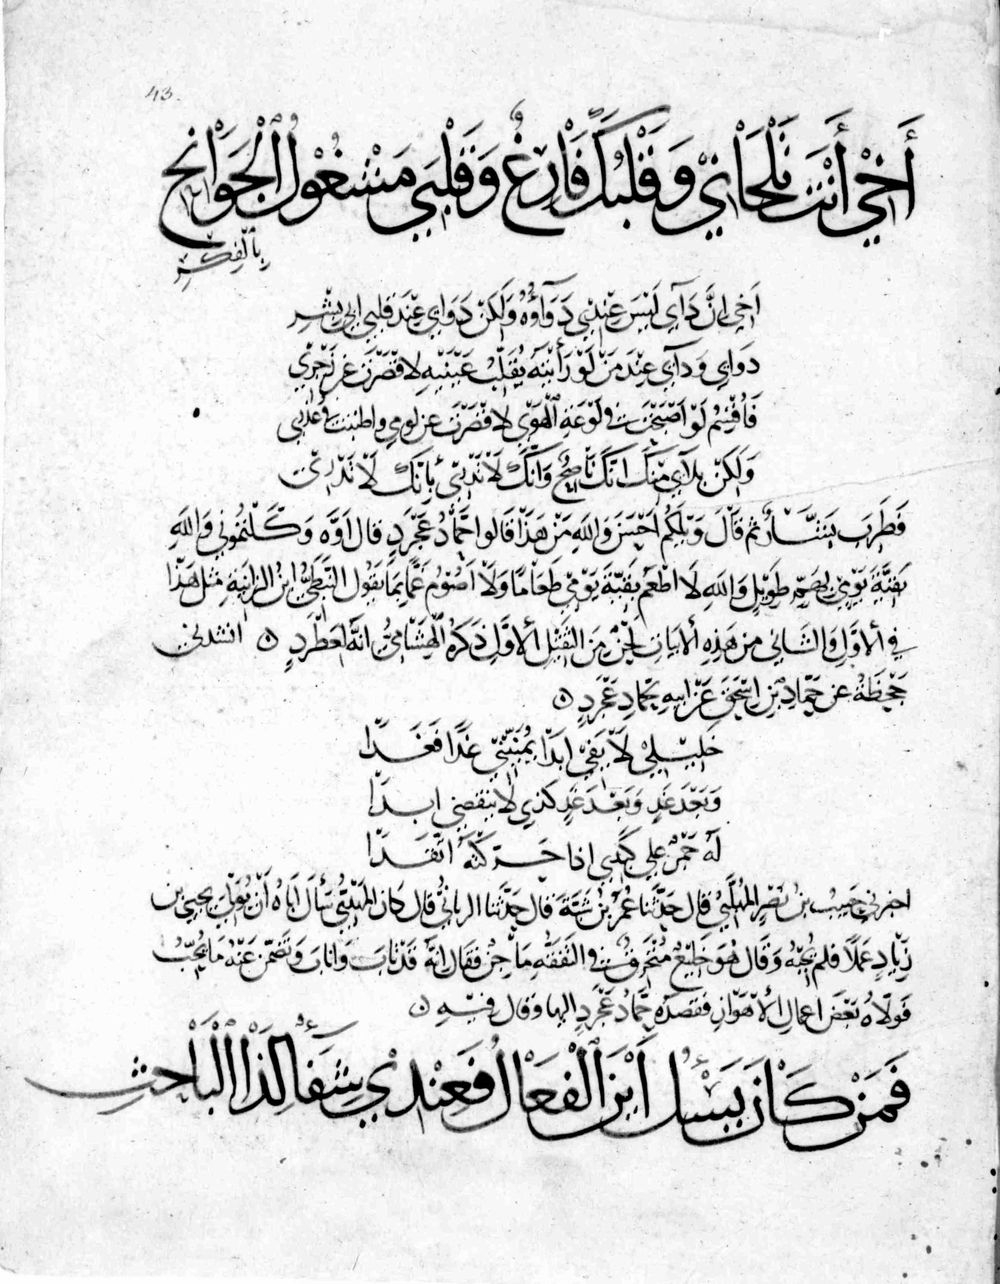 43
أَخِي أَنْتَ تَلْحَانِي وَقَلْبُكَ فَارِغٌ وَقَلْبِي مَشْغُولُ الْجَوَانِحِ
بِالْفِكْرِ
أخي إنَّ دَآءِي لَيْسَ عِنْدِي دَوَآؤُهُ وَلَكِنْ دَوَاءِي عِنْدَ قَلْبِ أبي بِشْرِ
دَوَاءِي وَدَآءِي عِنْدَ مَنْ لَوْ رَأَيْتَهُ يُقَلِّبُ عَيْنَيْهِ لاقْصَرْتَ عَنْ زَجْرِي
فَأُقْسِمُ لَوْ أَصْبَحْتَ فِي لَوْعَةِ الْهَوَى لاقْصَرْتَ عن لومي واطنبت في عُذْرِي
وَلَكِنْ بَلَاءِي مِنْكَ انَّكَ نَاصِحٌ وَانَّكَ لَا تَدْرِي بِأَنَّكَ لَا تَدْرِي
فَطَرِبَ بَشَّارٌ ثم قَالَ وَيْلَكُم احْسَنَ وَاللهِ مَنْ هَذَا قَالُوا حَمَّادُ عَجْرَدٍ قال أَوَّه وَكَلْتُمُونِي وَاللهِ
بَقِيَّةَ يَوْمِي بِهَمٍّ طَوِيلٍ وَاللهِ لَا اطْعَمُ بَقِيَّةَ يَوْمِي طَعَامًا وَلَا اصُومُ غَمًّا بِمَا يَقُولُ النَّبَطِيُّ ابْنُ الزَّانِيَةِ مِثْلَ هَذَا
في الأَوَّلِ وَالثَّانِي من هَذِهِ الأبيات لَحْنٌ مِنَ الثَّقِيلِ الأوَّلِ ذَكَرَهُ الْهِشَامِيُّ انَّهُ لعَطَرَّدٍ ٥ انشدني
جَحْظَةُ عن حَمَّادِ بْنِ إِسْحَقَ عَنْ ابِيهِ لحَمَّادِ عَجْرَدٍ ٥
خَلِيلِي لَا يَفِي ابَدًا يُمَنِّينِي غَدًا فَغَدَا
وَبَعْدَ غَدٍ وَبَعْدَ غَدٍ كَذِي لا يَنْقَضِي ابَدَا
لَهُ جَمْرٌ على كَبِدِي إذا حَرَّكْتُهُ اتَّقَدَا
اخبرني حَبِيبُ بنُ نَصْرٍ المُهَلَّبِيُّ قال حَدَّثَنَا عُمَرُ بْنُ شَبَّةَ قال حَدَّثَنَا الزياديُّ قال كَانَ المَهْدِيُّ سَأَلَ أَبَاهُ أَنْ يُوَلِّيَ يحيى بن
زِيَادٍ عَمَلاً فلم يُجِبْهُ وَقَالَ هُوَ خَلِيعٌ مُتَخَرِّقٌ في النَّفَقَةِ مَاجِنٌ فقَالَ إنَّهُ قَدْ تَابَ وَانابَ وَتَضَمَّنَ عَنْهُ مَا يُحِبُّ
فَوَلَّاهُ بَعْضَ اعْمَالِ الأَهْوَازِ فَقَصَدَهُ حَمَّادُ عَجْرَدٍ اليها وقال فيه ٥
فَمَنْ كَانَ يَسْأَلُ أَيْنَ الْفَعَالُ فَعِنْدِي شِفَاءٌ لِذَا الْبَاحِثِ